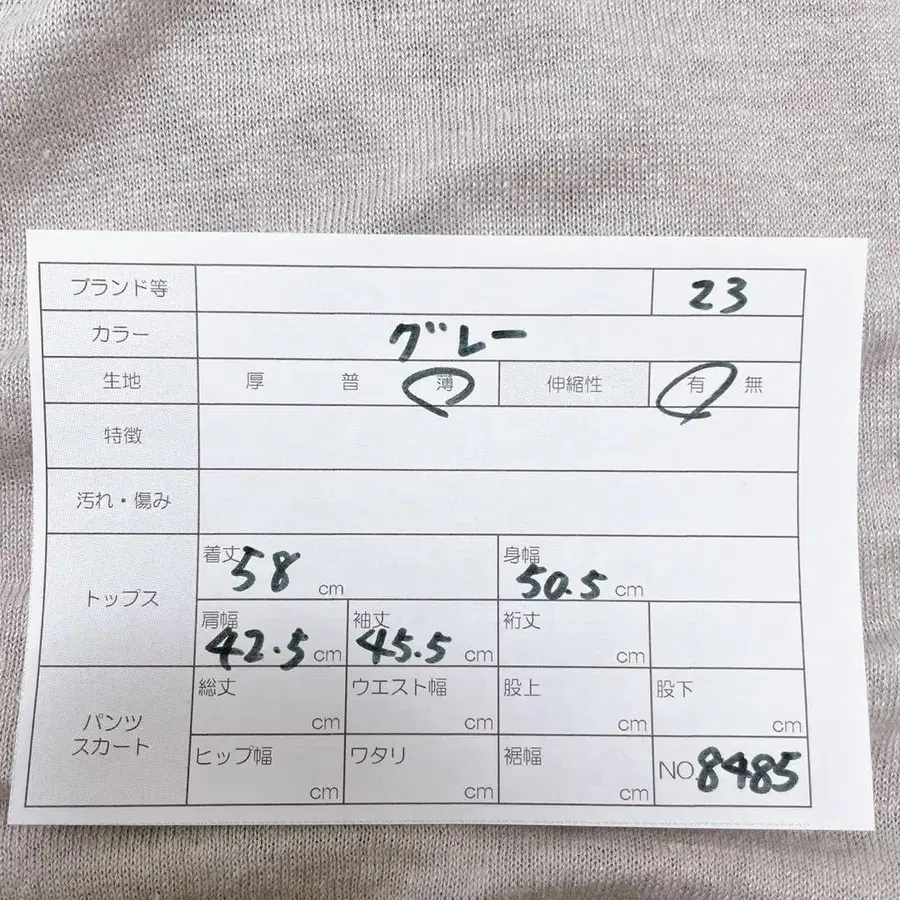 ブランド等 23
カラー グレー
生地 厚 普 薄 伸縮性 有 無
特徴
汚れ・傷み
トップス
着丈 58 cm 身幅 50.5 cm
肩幅 42.5 cm 袖丈 45.5 cm 裄丈 cm
パンツ
スカート
総丈 cm ウエスト幅 cm 股上 cm 股下 cm
ヒップ幅 cm ワタリ cm 裾幅 cm NO. 8485